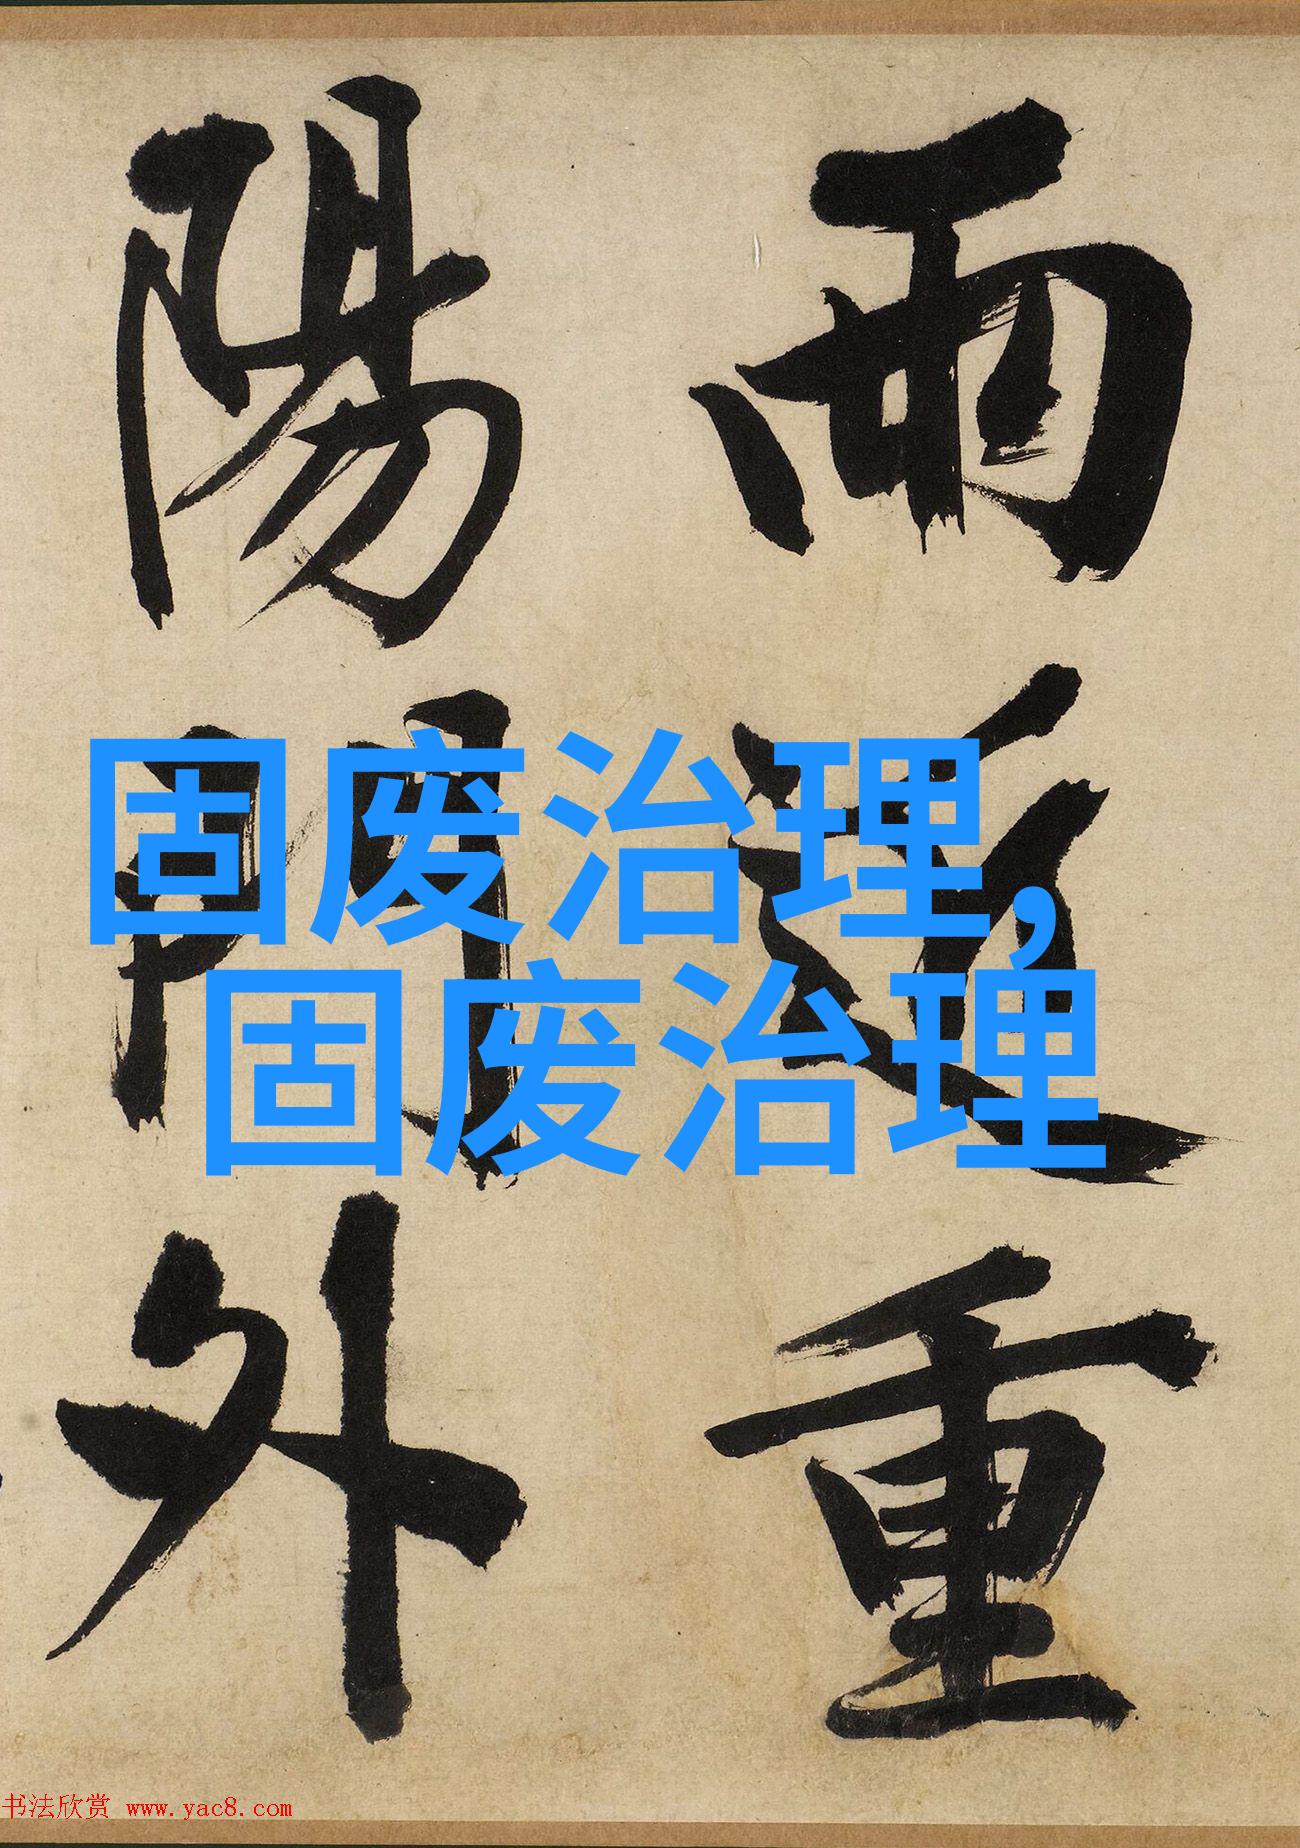 雨近重
陽門外
固废治理,
固废治理
书法欣赏 www.yac8.com